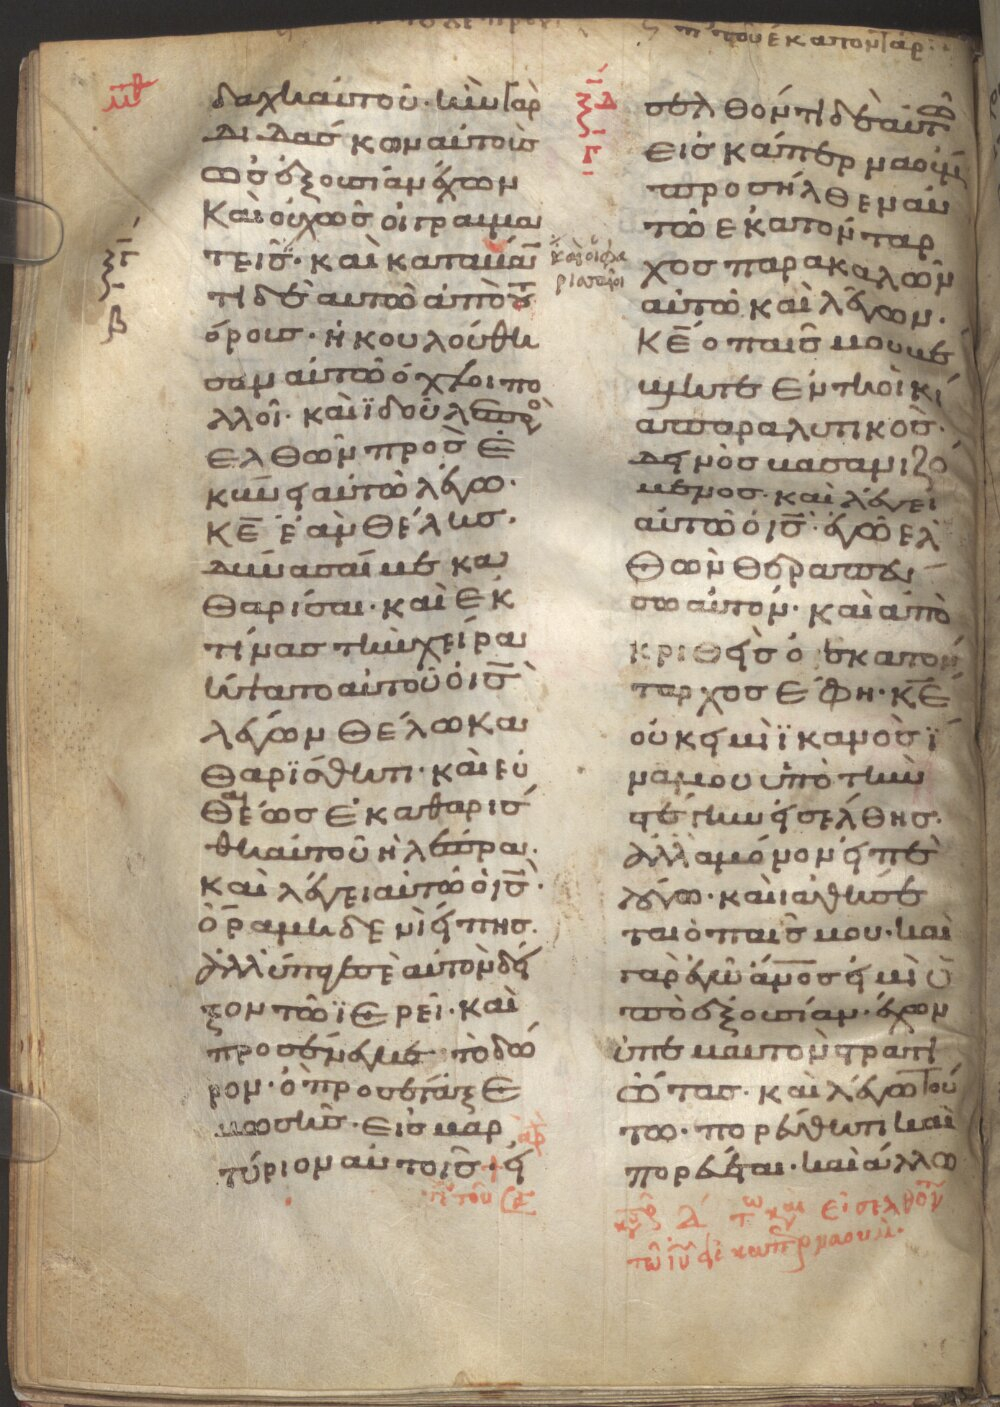 π τοῦ ἑκατοντάρ
δαχῆ αὐτοῦ· ἦν γὰρ
διδάσκων αὐτοὺς
ὡς ἐξουσίαν ἔχων
Καὶ οὐχ ὡς οἱ γραμμα
τεῖς· καὶ καταβάν
τι δὲ αὐτῶ ἀπὸ τ
όρους· ἠκολούθη
σαν αὐτῶ ὄχλοι πο
λλοί· καὶ ἰδοῦ λεπρὸ
ἐλθὼν προσε
κύνει αὐτῶ λέγω·
Κ̅Ε̅ ἐὰν θέλης·
δύνασαί με κα
θαρίσαι· καὶ ἐκ
τίνας τὴν χεῖρα
ἥψατο αὐτοῦ ὁ ι̅ς̅
λέγων θέλω κα
θαρίσθητι· καὶ εὐ
θέως ἐκαθαρίσ
θη αὐτοῦ ἡ λέπρα·
Καὶ λέγει αὐτῶ ὁ ι̅ς̅·
ὅρα μηδενὶ εἴπης·
ἀλλ ὕπαγε σεαυτὸν δεῖ
ξον τῶ ἱερεῖ· καὶ
προσένεγκε τὸ δῶ
ρον· ὃ προσέταξε
μωσῆς· εἰς μαρ
τύριον αὐτοῖς· εἰ
καὶ οἱ φα
ρισαῖοι
σελθόντι δὲ αὐτῶ
εἰς καπερναοὺμ
προσῆλθεν αὐ
τῶ ἑκατόνταρ
χος παρακαλῶν
αὐτὸν καὶ λέγων·
Κ̅Ε̅ ὁ παῖς μου βέ
βληται ἐν τῆ οἰκί
α παραλυτικός·
δεινὸς βασανιζό
μενος· καὶ λέγει
αὐτῶ ὁ ι̅ς̅· ἐγὼ ἐλ
θὼν θεραπεύ
σω αὐτόν· καὶ ἀπο
κριθεὶς ὁ ἑκατόν
ταρχος ἔφη· κ̅ε̅
οὐκ εἰμὶ ἱκανὸς ἵ
να μου ὑπὸ τὴν
στέγην εἰσέλθης·
ἀλλὰ μόνον εἰπὲ
λόγω· καὶ ἰαθήσε
ται ὁ παῖς μου· καὶ
γὰρ ἐγὼ ἄνος εἰμὶ ὑ
πὸ ἐξουσίαν· ἔχων
ὑπ ἐμαυτὸν στρατι
ώτας· καὶ λέγω τού
τω· πορεύθητι καὶ
πορεύεται· καὶ ἄλλω
τῶ κ̅ρ̅ω εἰσελθόν
τῶ ι̅υ̅ εἰ καπερναουμ·